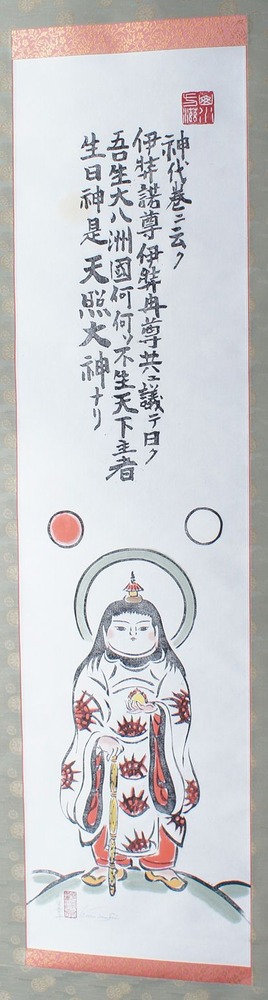 神代巻ニ云ク
伊弉諾尊伊弉冉尊共ニ議テ曰ク
吾生大八洲国何何ソ不生天下主者
生日神是天照大神ナリ